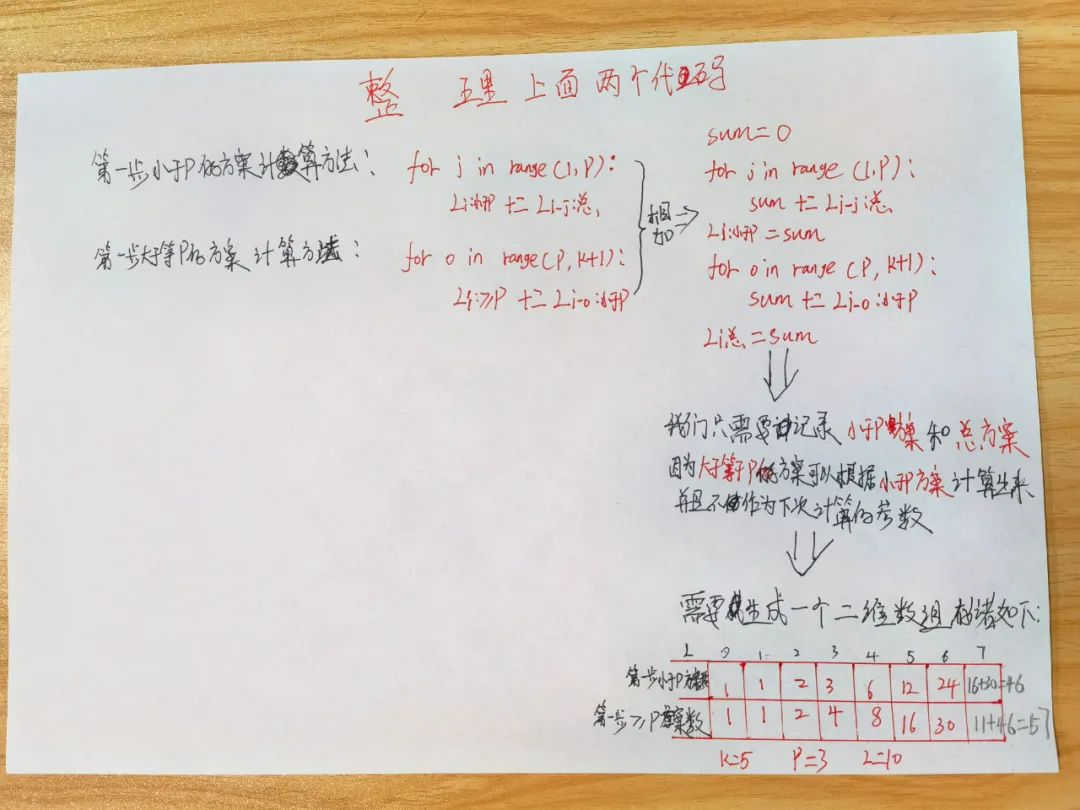 整理上面两个代码
第一步小于P的方案计算方法：
for j in range(1,P):
Li:小于P += Li-j:总
第一步大于等P的方案计算方法：
for o in range(P,K+1):
Li:≥P += Li-o:小于P
相加
sum=0
for j in range(1,P):
sum += Li-j:总
Li:小于P = sum
for o in range(P,K+1):
sum += Li-o:小于P
Li总 = sum
我们只需要记录小于P方案和总方案
因为大于等于P的方案可以根据小于P方案计算出来
并且不作为下次计算的参数
需要生成一个二维数组存诸如下:
L 0 1 2 3 4 5 6 7
第一步小于P方案数 1 1 2 3 6 12 24 16+30=46
第一步≥P方案数 1 1 2 4 8 16 30 11+46=57
K=5 P=3 L=10